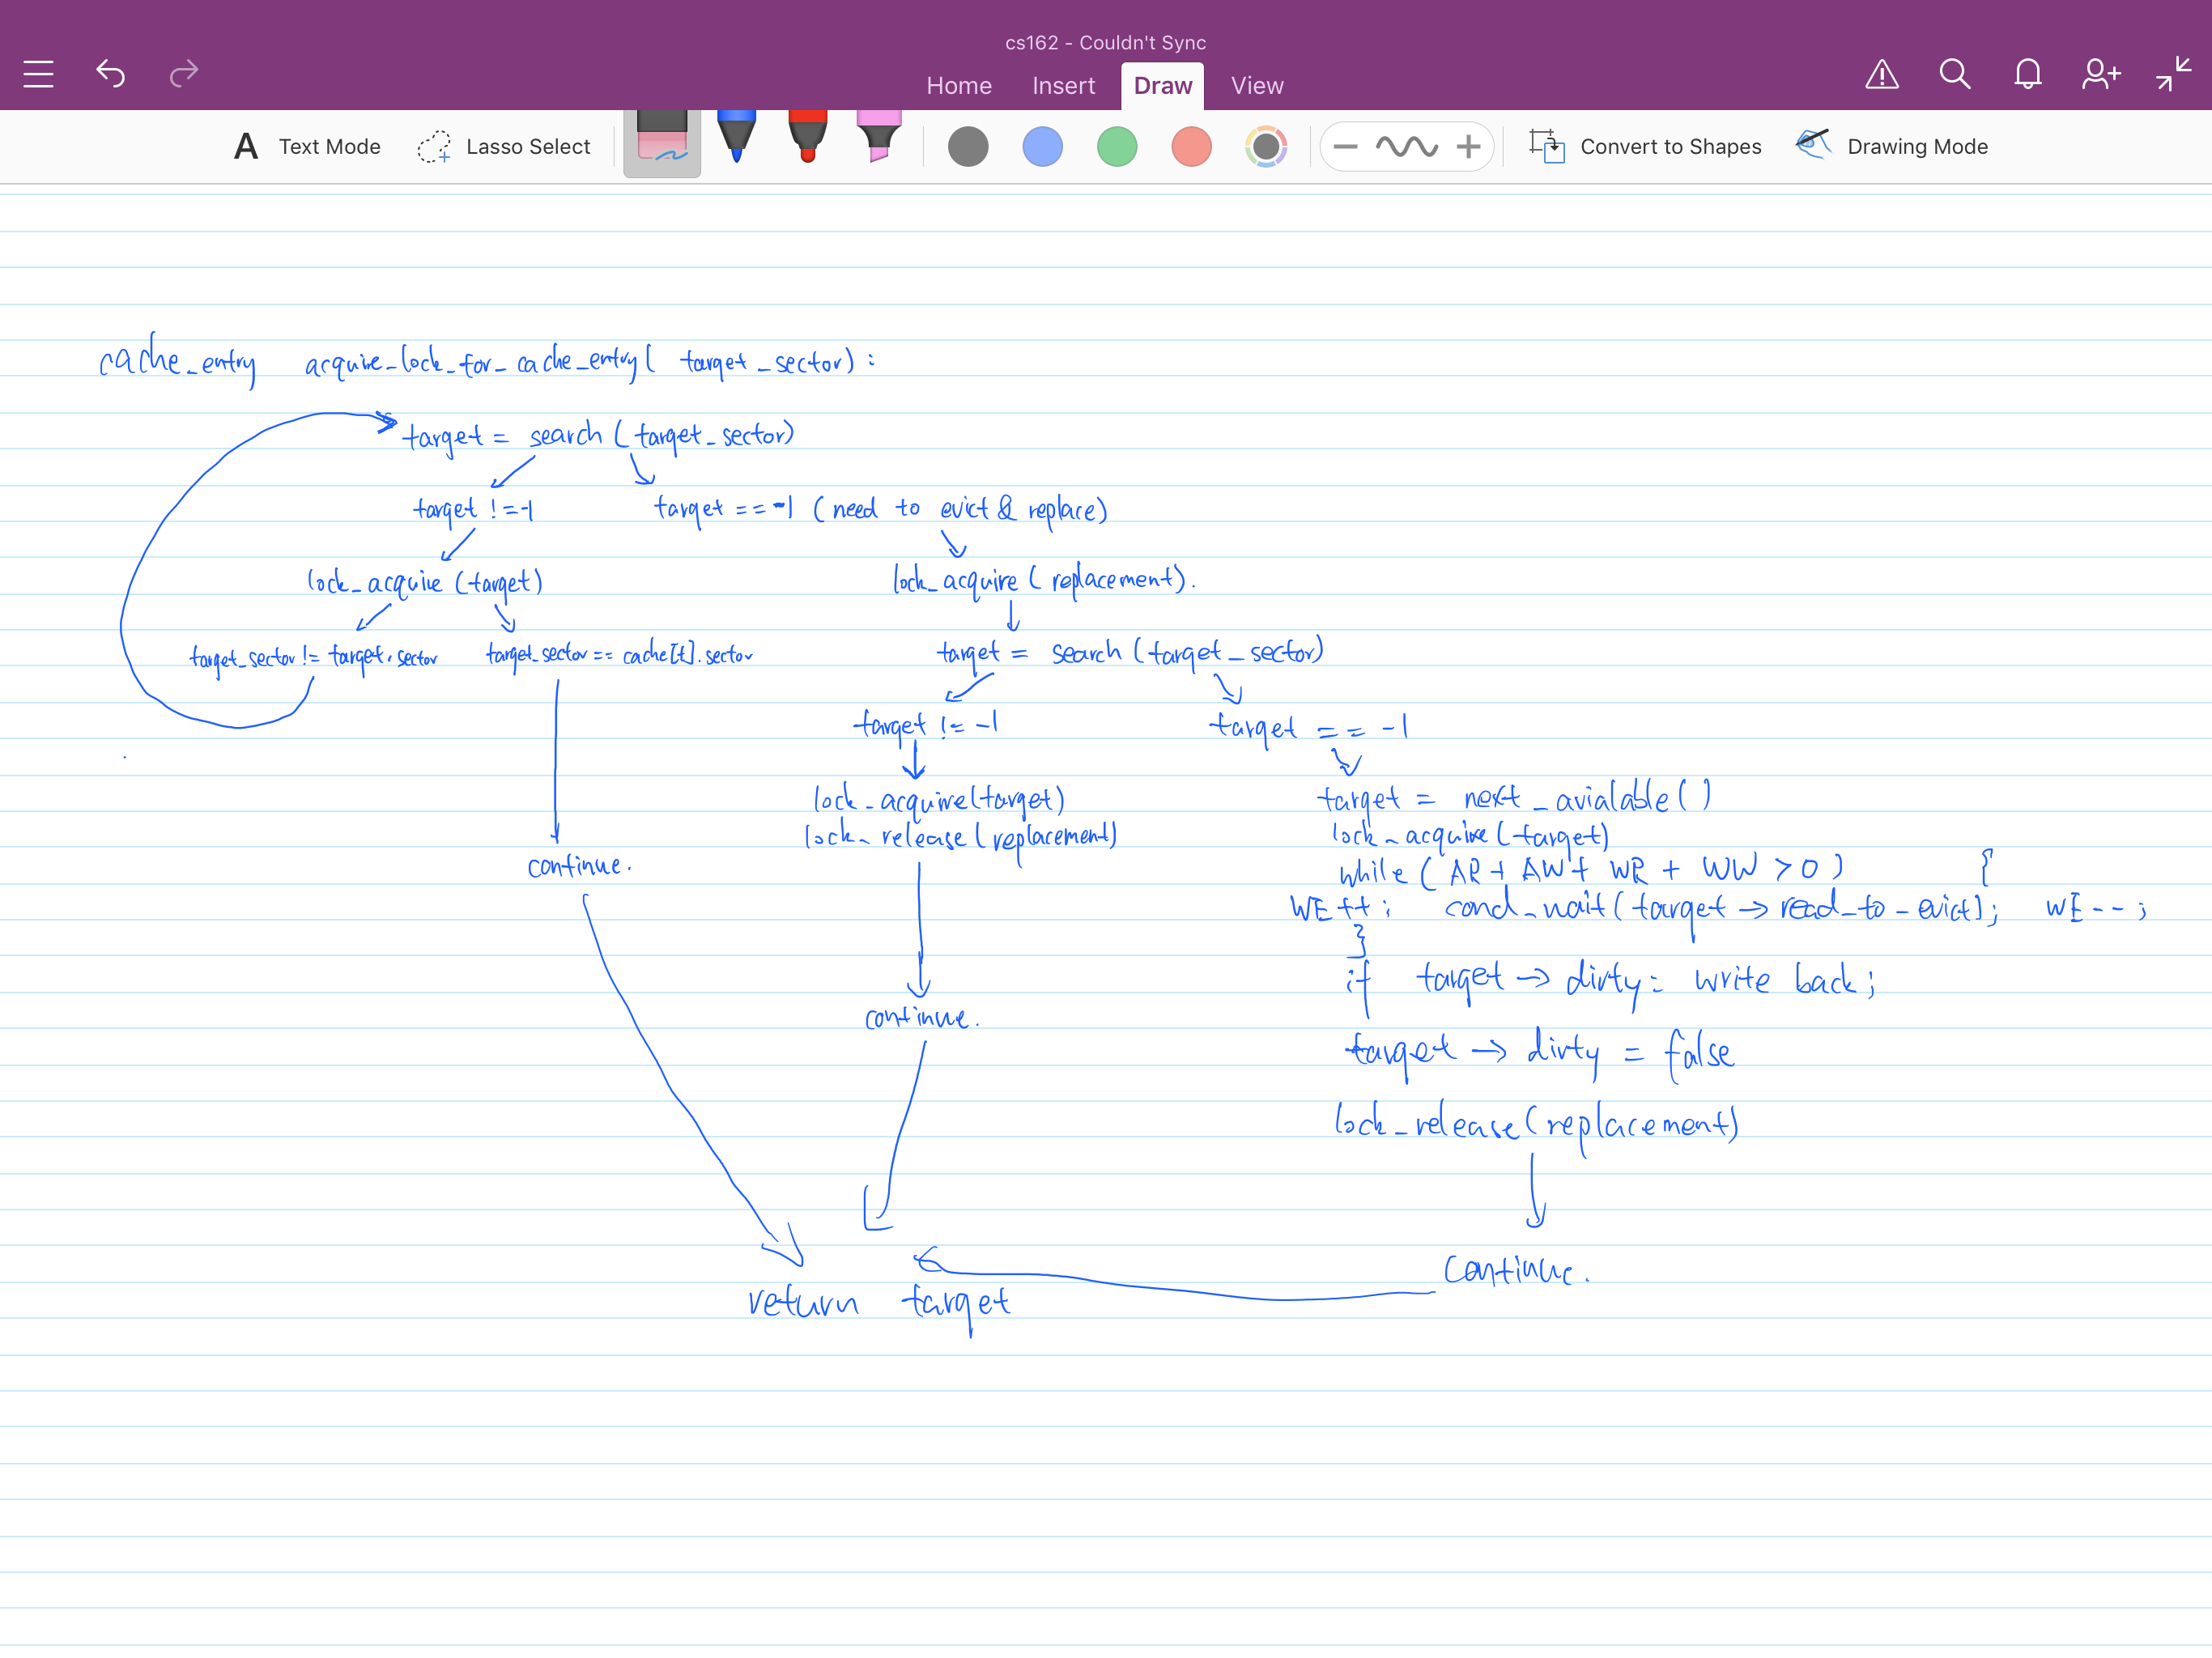 cs162 - Couldn't Sync
Home Insert Draw View
A Text Mode Lasso Select Convert to Shapes Drawing Mode
cache_entry acquire_lock_for_cache_entry( target_sector) :
target = search (target_sector)
target != -1
target == -1 (need to evict & replace)
lock_acquire (target)
lock_acquire (replacement).
target_sector != target.sector
target_sector == cache[t].sector
target = search (target_sector)
target != -1
target == -1
lock_acquire(target)
lock_release(replacement)
continue.
target = next_avialable()
lock_acquire(target)
while ( AR + AW + WR + WW > 0 ) {
WE++; cond_wait(target → read_to_evict); WE--;
}
if target → dirty: write back;
continue.
target → dirty = false
lock_release(replacement)
continue.
return target